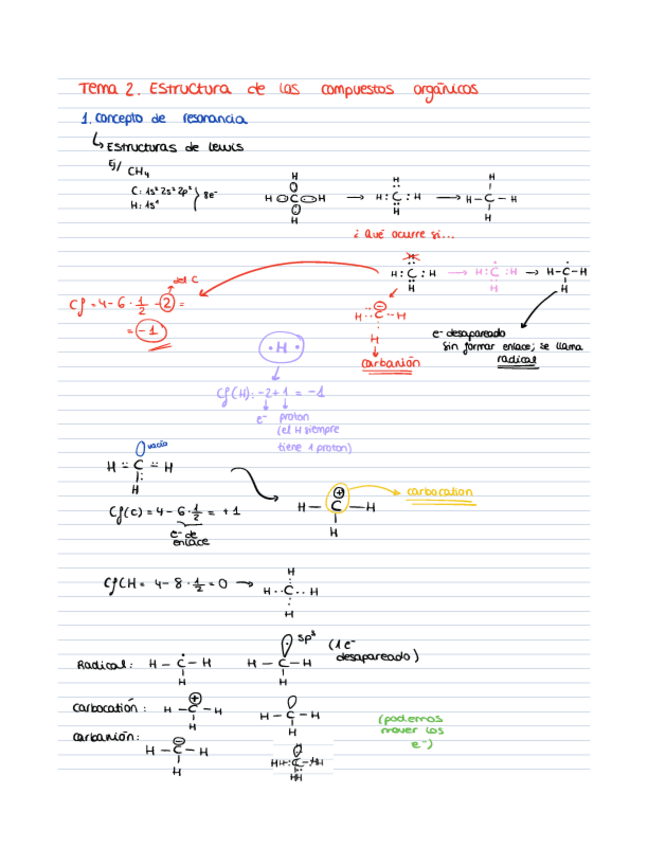 Tema 2. Estructura de los compuestos orgánicos
1. Concepto de resonancia
↳ Estructuras de Lewis
Ej/ CH₄
C: 1s² 2s² 2p²
H: 1s¹
8e⁻
H C H
H
H
H : C : H
H
H
H – C – H
H
H
¿Qué ocurre si...
H : C : H
H
H : C : H
H
H – C – H
H
del C
Cf = 4 – 6 · 1/2 – 2 =
= –1
H · · C – H
H
carbanión
e⁻ desapareado
sin formar enlace; se llama
radical
· H ·
Cf(H): –2 + 1 = –1
e⁻ proton
(el H siempre
tiene 1 proton)
vacío
H C H
H
Cf(C) = 4 – 6 · 1/2 = + 1
e⁻ de
enlace
⊕
H – C – H
H
carbocation
Cf CH = 4 – 8 · 1/2 = 0 →
H
H · · C · · H
H
Radical: H – C – H
H
H – C – H
H
sp³
(1 e⁻
desapareado)
Carbocatión: H – C – H
⊕
H
H – C – H
H
Carbanión:
H – C – H
⊖
H
(podemos
mover los
e⁻)